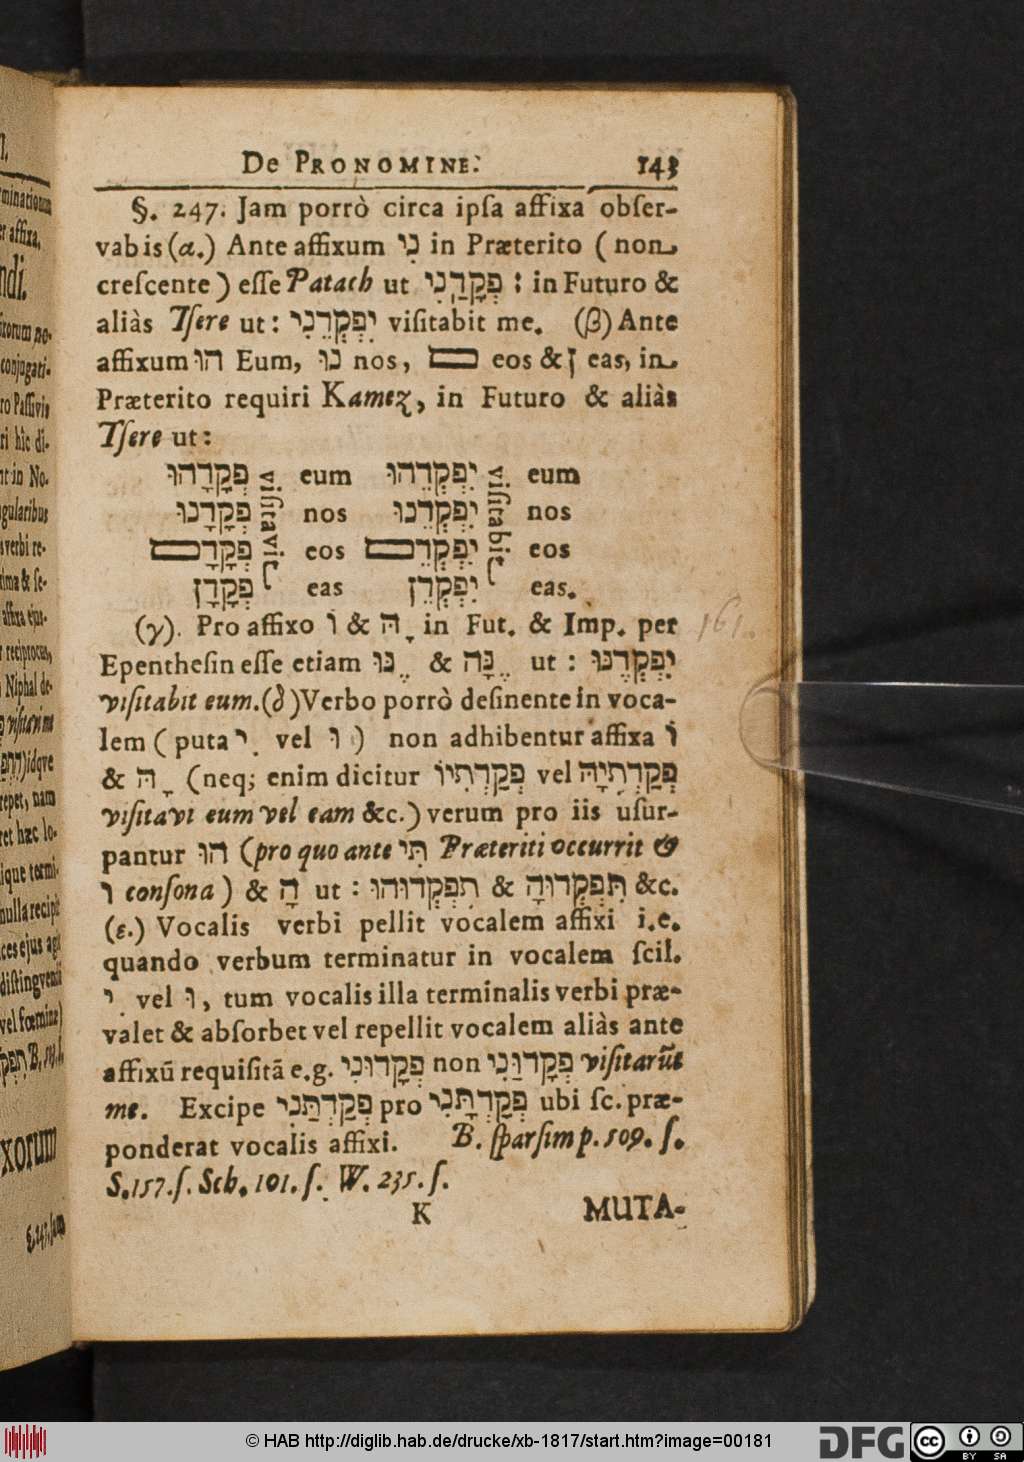 De PRONOMINE. 143
§. 247. Jam porrò circa ipſa affixa obſer-
vabis (α.) Ante affixum נִי in Præterito (non
creſcente) eſſe Patach ut פְּקָדַנִי : in Futuro &
aliàs Tſere ut: יִפְקְדֵנִי viſitabit me. (β) Ante
affixum הוּ Eum, נוּ nos, ם eos & ן eas, in
Præterito requiri Kamez, in Futuro & aliàs
Tſere ut:
פְּקָדָהוּ viſitavit eum יִפְקְדֵהוּ viſitabit eum
פְּקָדָנוּ nos יִפְקְדֵנוּ nos
פְּקָדָם eos יִפְקְדֵם eos
פְּקָדָן eas יִפְקְדֵן eas.
(γ). Pro affixo וֹ & ָהּ in Fut. & Imp. per
Epentheſin eſſe etiam ֶנּוּ & ֶנָּה ut : יִפְקְדֶנּוּ
viſitabit eum. (δ) Verbo porrò deſinente in voca-
lem (puta ִי vel וּ) non adhibentur affixa וֹ
& ָהּ (neq; enim dicitur פְּקַדְתִּיוֹ vel פְּקַדְתִּיָהּ
viſitavi eum vel eam &c.) verum pro iis uſur-
pantur הוּ (pro quo ante תִּי Præteriti occurrit &
ו conſona) & הָ ut : תִּפְקְדוּהוּ & תִּפְקְדוּהָ &c.
(ε.) Vocalis verbi pellit vocalem affixi i.e.
quando verbum terminatur in vocalem ſcil.
ִי vel וּ, tum vocalis illa terminalis verbi præ-
valet & abſorbet vel repellit vocalem aliàs ante
affixũ requiſitã e.g. פְּקָדוּנִי non פְּקָדוַּנִי viſitarũt
me. Excipe פְּקַדְתַּנִי pro פְּקַדְתָּנִי ubi ſc. præ-
ponderat vocalis affixi. B. ſparſim p. 509. ſ.
S. 157. ſ. Sch. 101. ſ. W. 235. ſ.
K MUTA-
161.
© HAB http://diglib.hab.de/drucke/xb-1817/start.htm?image=00181
DFG
cc BY SA